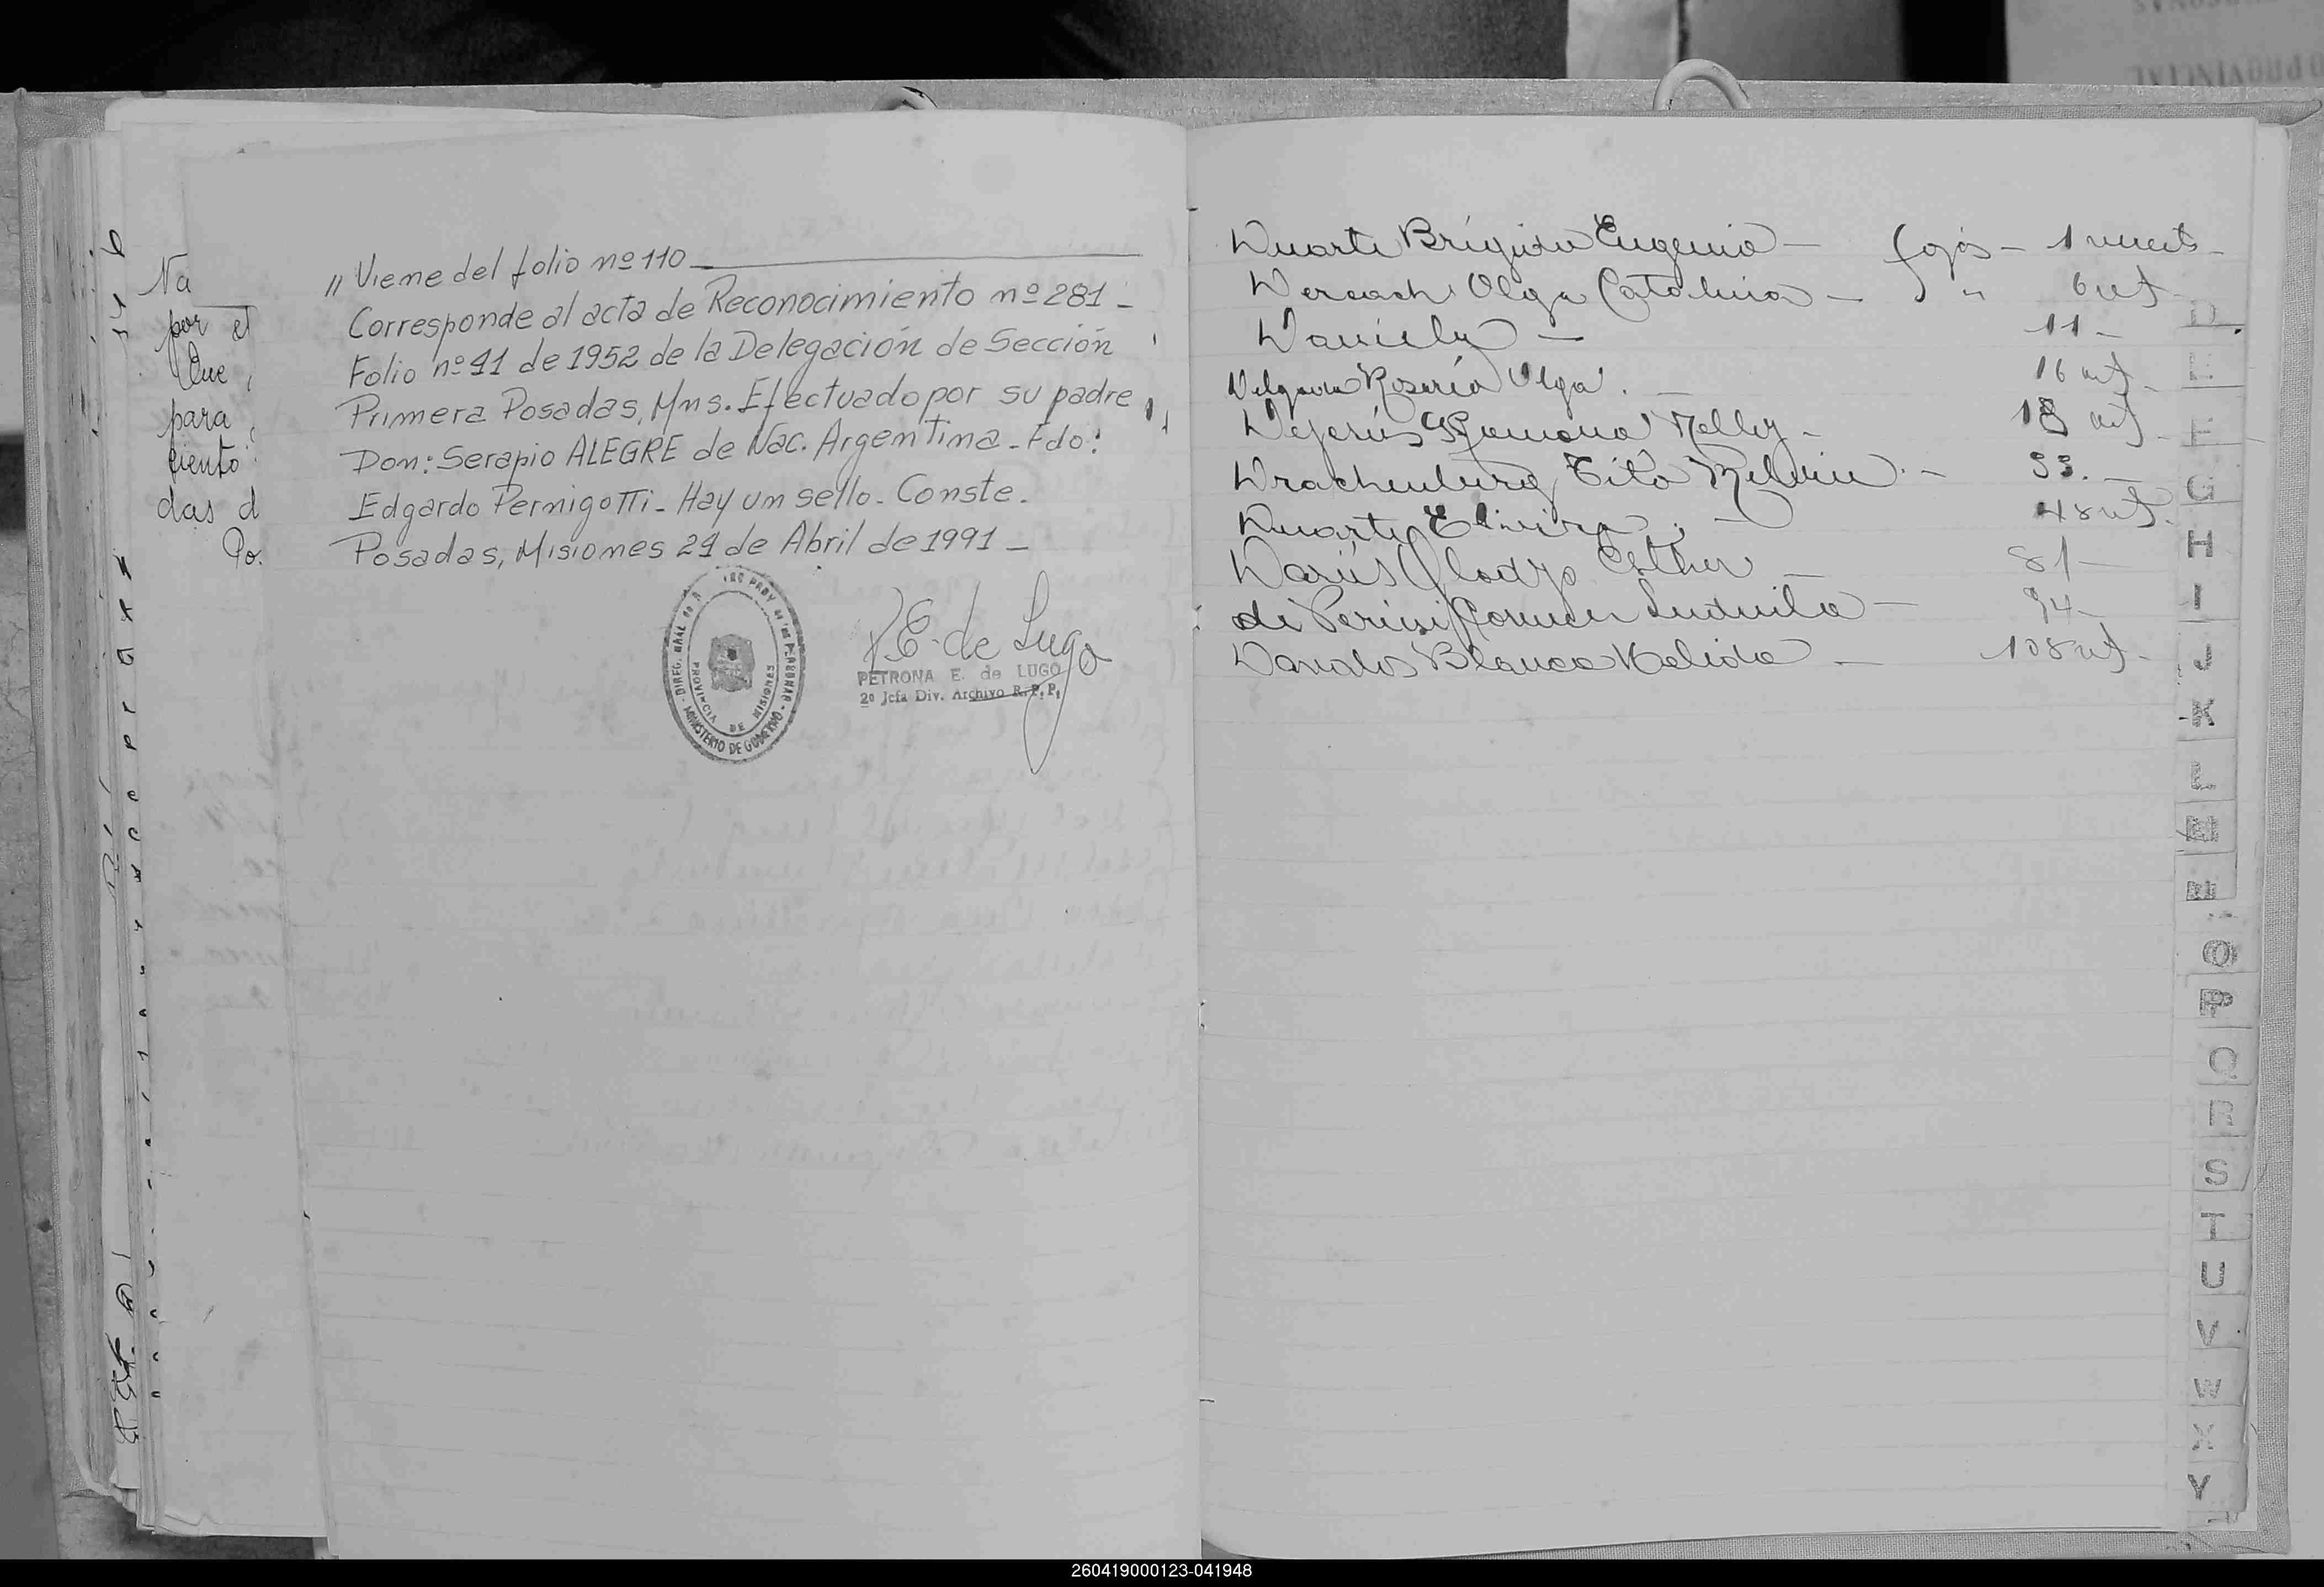 Na
por el
Que
para
ciento
das d
Po.
" Viene del folio nº 110
Corresponde al acta de Reconocimiento nº 281 -
Folio nº 41 de 1952 de la Delegación de Sección
Primera Posadas, Mns. Efectuado por su padre
Don: Serapio ALEGRE de Nac. Argentina - Fdo:
Edgardo Pernigotti - Hay un sello - Conste.
Posadas, Misiones 24 de Abril de 1991 -
MINISTERIO DE GOBIERNO
PROVINCIA DE MISIONES
P. E. de Lugo
PETRONA E. de LUGO
2º Jefa Div. Archivo R. P. P.
Duarte Brígida Eugenia - fojas - 1 vuelta -
Olga Catalina - " 6 vta
11 -
Delgado Rosaría Olga . - 16 vta -
Dejesús Ramona Nelly - 18 vta -
Drachenberg Tito - 33. -
Duarte Elvira . - 48 vta.
Darius Gladys Esther - 81 -
di Perini Carmen Ludmila - 94 -
Davalos Blanca Nelida - 108 vta -
D
E
F
G
H
I
J
K
L
M
N
O
P
Q
R
S
T
U
V
W
X
Y
260419000123-041948